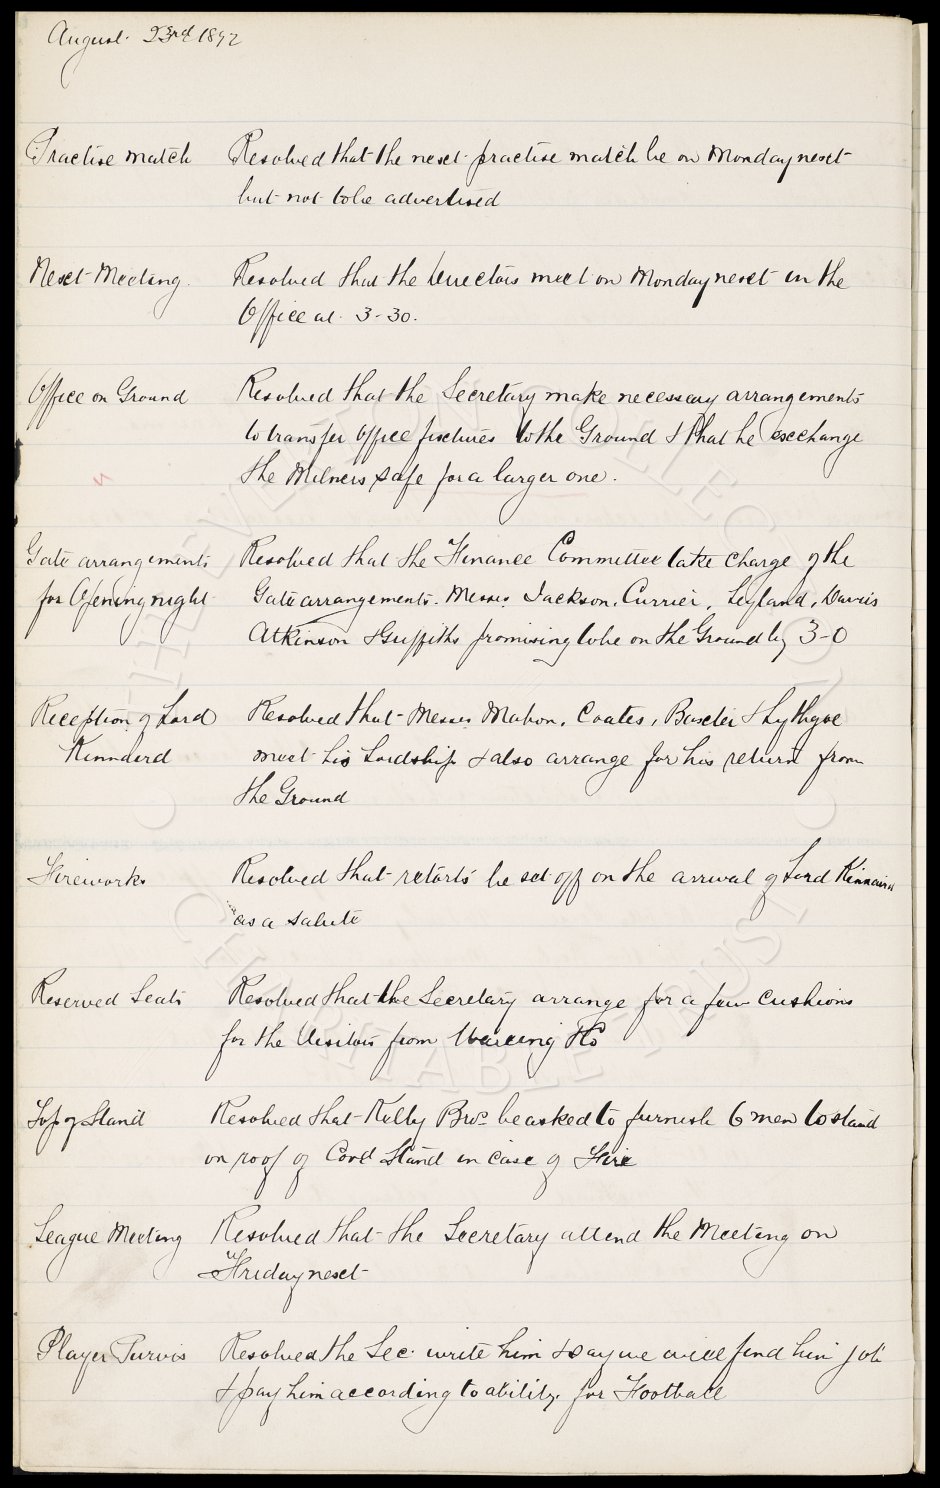 August 23rd 1892
Practise match Resolved that the next practise match be on Monday next
but not to be advertised
Next Meeting. Resolved that the Directors meet on Monday next in the
Office at 3-30.
Office on Ground Resolved that the Secretary make necessary arrangements
to transfer office fixtures to the Ground & that he exchange
the Milners safe for a larger one.
Gate arrangements Resolved that the Finance Committee take charge of the
for Opening night Gate arrangements. Messrs. Jackson, Currier, Leyland, Davies
Atkinson & Griffiths promising to be on the Ground by 3-0
Reception of Lord Resolved that Messrs Mahon, Coates, Baxter & Lythgoe
Kinnaird meet his Lordship & also arrange for his return from
the Ground
Fireworks Resolved that retorts be set off on the arrival of Lord Kinnaird
as a salute
Reserved Seats Resolved that the Secretary arrange for a few cushions
for the Visitors from & Co
Top of Stand Resolved that Kelly Bros. be asked to furnish 6 men to stand
on roof of Cov'd Stand in case of Fire
League Meeting Resolved that the Secretary attend the Meeting on
Friday next
Player Purvis Resolved the Sec. write him & say we will find him job
& pay him according to ability for Football
THE EVERTON COLLECTION
CHARITABLE TRUST